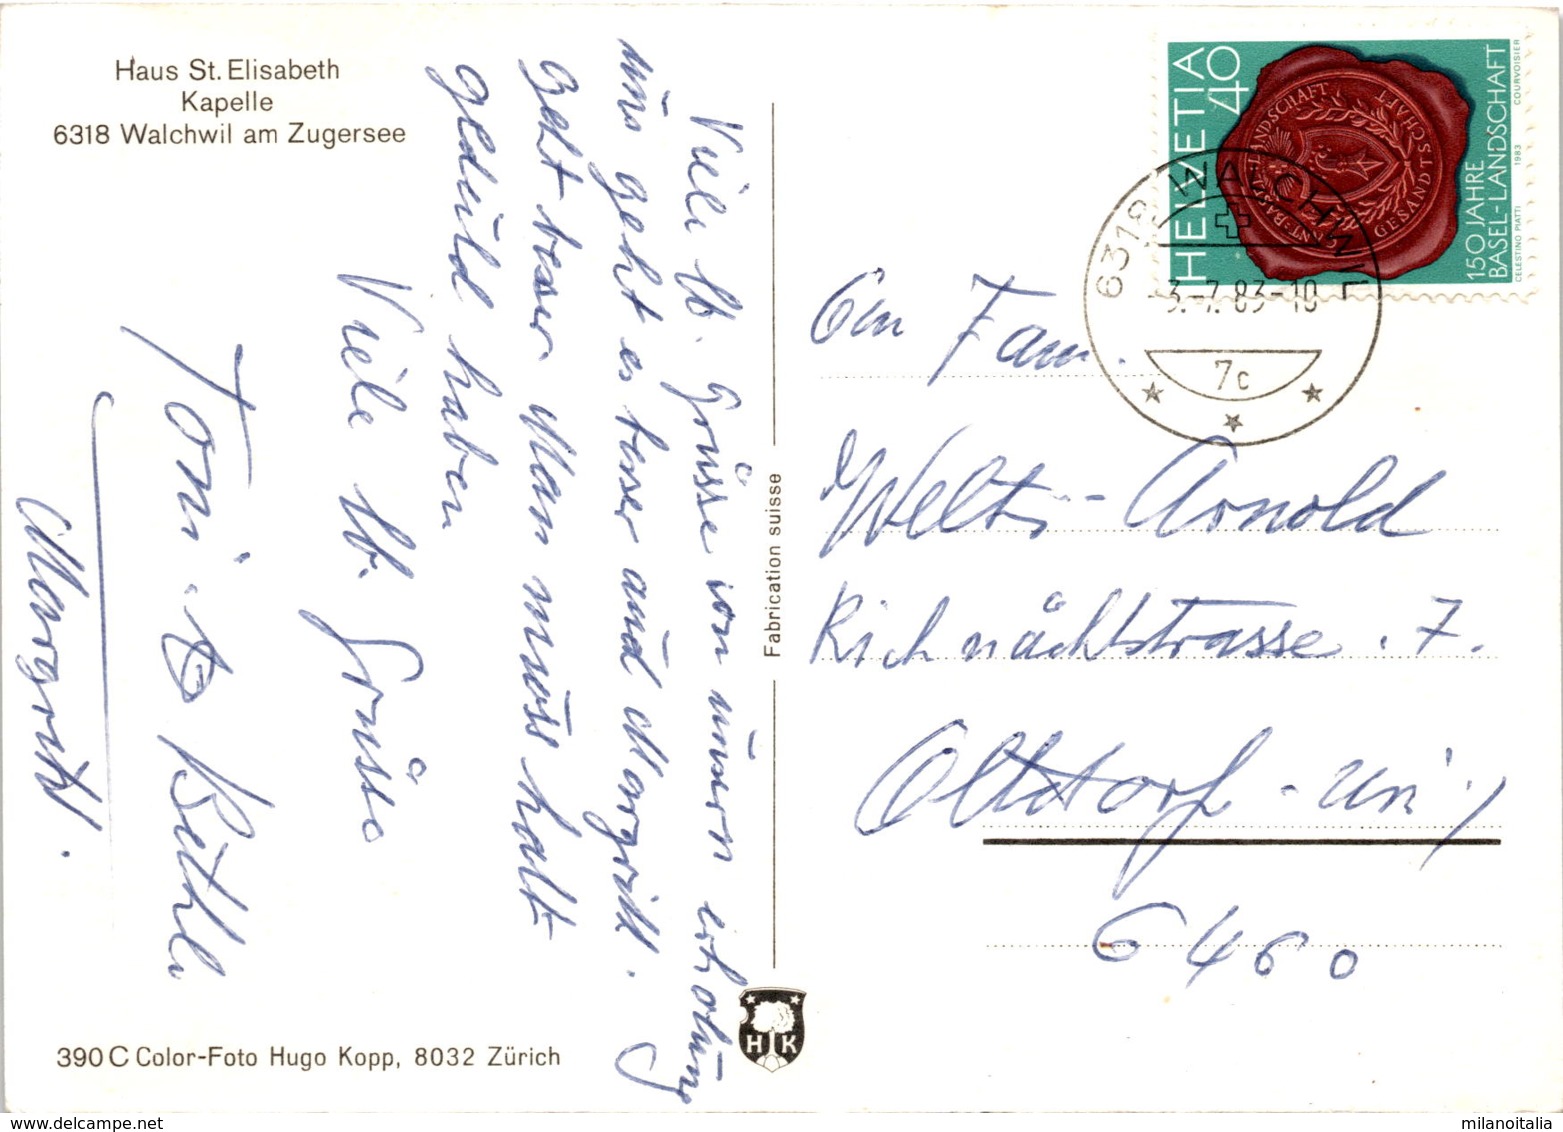 Haus St. Elisabeth
Kapelle
6318 Walchwil am Zugersee
Viele lb. Grüsse von unsern erholung
uns geht es besser und Margrith.
Geht besser. Man muss halt
geduld haben
Viele lb. Grüsse
Toni
Bethli
Margrith.
390 C Color-Foto Hugo Kopp, 8032 Zürich
Fabrication suisse
H K
HELVETIA
40
150 JAHRE
BASEL-LANDSCHAFT
CELESTINO PIATTI 1983 COURVOISIER
6318 WALCHWIL
-3.-7.83-10
7c
Fam.
Welti-Arnold
Altdorf - Uri
6460
milanoitalia